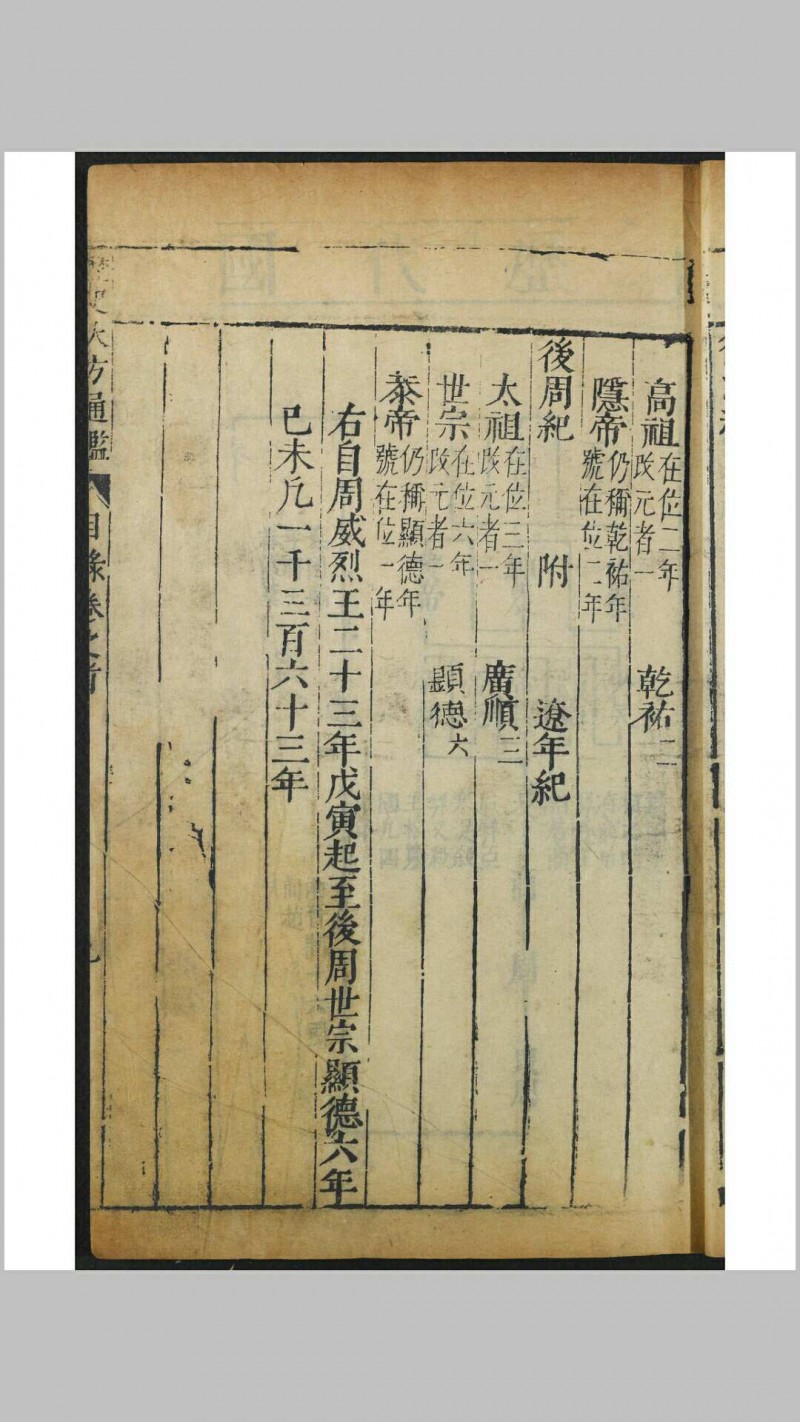 高祖 在位二年 改元者一 乾祐二
隱帝 仍稱乾祐年 號在位二年
後周紀 附 遼年紀
太祖 在位三年 改元者一 廣順三
世宗 在位六年 改元者一 顯德六
恭帝 仍稱顯德年 號在位一年
右自周威烈王二十三年戊寅起至後周世宗顯德六年
已未凡一千三百六十三年
歷史大方通鑑 目錄卷之首